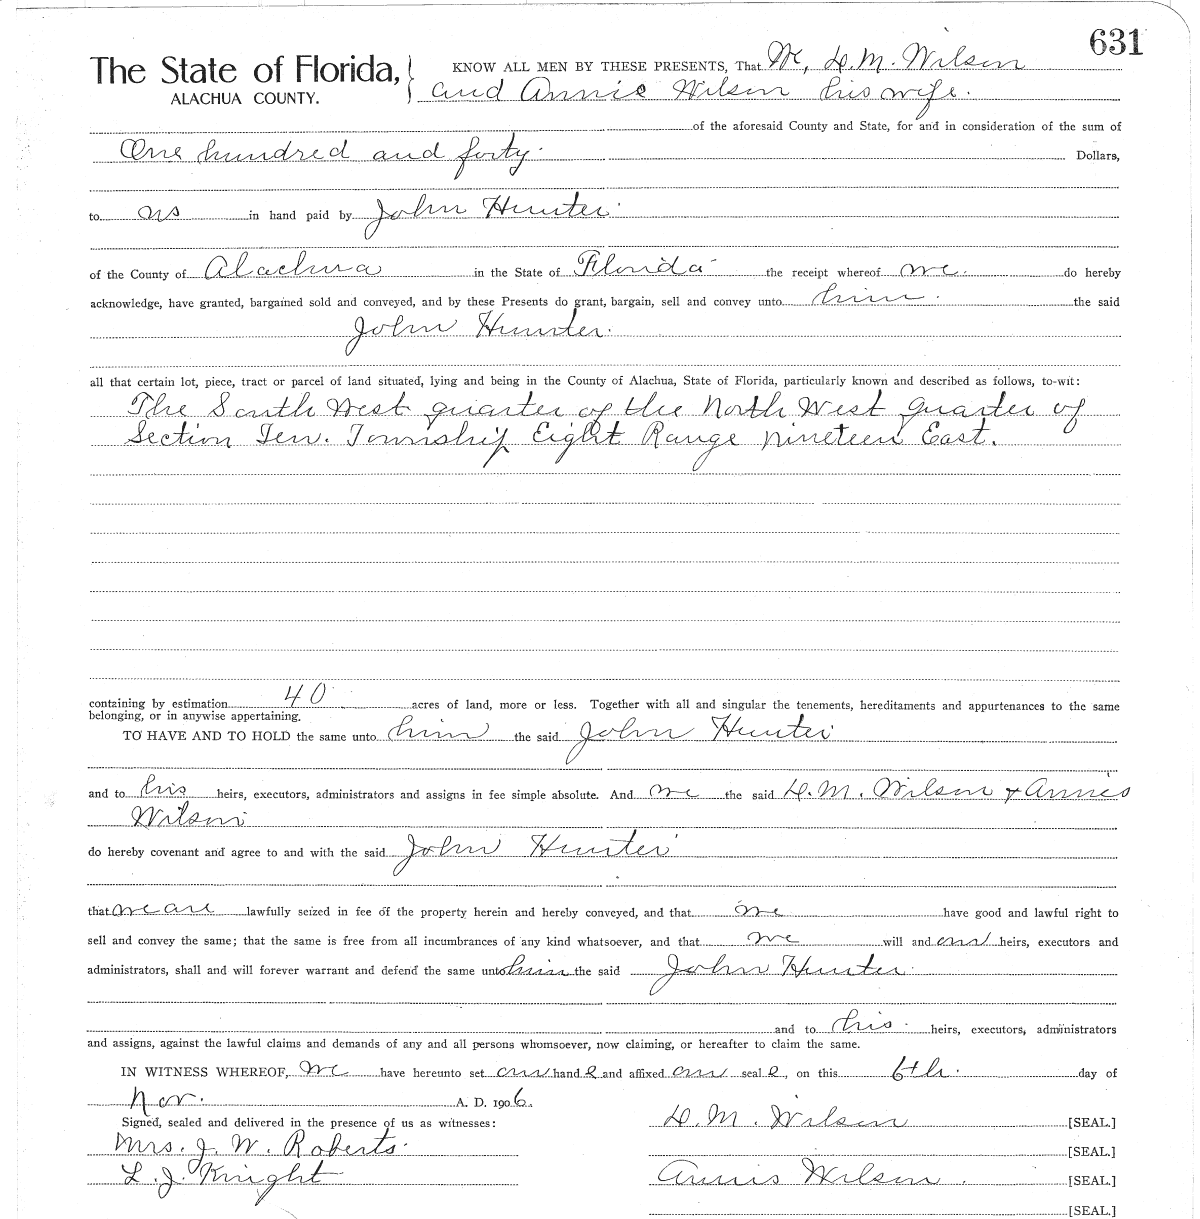 631
The State of Florida, KNOW ALL MEN BY THESE PRESENTS, That We, D. M. Wilson
ALACHUA COUNTY. and Annie Wilson his wife.
of the aforesaid County and State, for and in consideration of the sum of
One hundred and forty Dollars,
to us in hand paid by John Hunter
of the County of Alachua in the State of Florida the receipt whereof we do hereby
acknowledge, have granted, bargained sold and conveyed, and by these Presents do grant, bargain, sell and convey unto him the said
John Hunter.
all that certain lot, piece, tract or parcel of land situated, lying and being in the County of Alachua, State of Florida, particularly known and described as follows, to-wit:
The South West quarter of the North West quarter of
Section Ten. Township Eight Range nineteen East.
containing by estimation 40 acres of land, more or less. Together with all and singular the tenements, hereditaments and appurtenances to the same
belonging, or in anywise appertaining.
TO HAVE AND TO HOLD the same unto him the said John Hunter
and to his heirs, executors, administrators and assigns in fee simple absolute. And we the said D. M. Wilson & Annie
Wilson
do hereby covenant and agree to and with the said John Hunter
that we are lawfully seized in fee of the property herein and hereby conveyed, and that we have good and lawful right to
sell and convey the same; that the same is free from all incumbrances of any kind whatsoever, and that we will and our heirs, executors and
administrators, shall and will forever warrant and defend the same unto him the said John Hunter
and to his heirs, executors, administrators
and assigns, against the lawful claims and demands of any and all persons whomsoever, now claiming, or hereafter to claim the same.
IN WITNESS WHEREOF, we have hereunto set our hand s and affixed our seal s, on this 6th. day of
Nov. A. D. 1906.
Signed, sealed and delivered in the presence of us as witnesses: D. M. Wilson [SEAL.]
Mrs. J. W. Roberts [SEAL.]
L. J. Knight Annie Wilson [SEAL.]
[SEAL.]